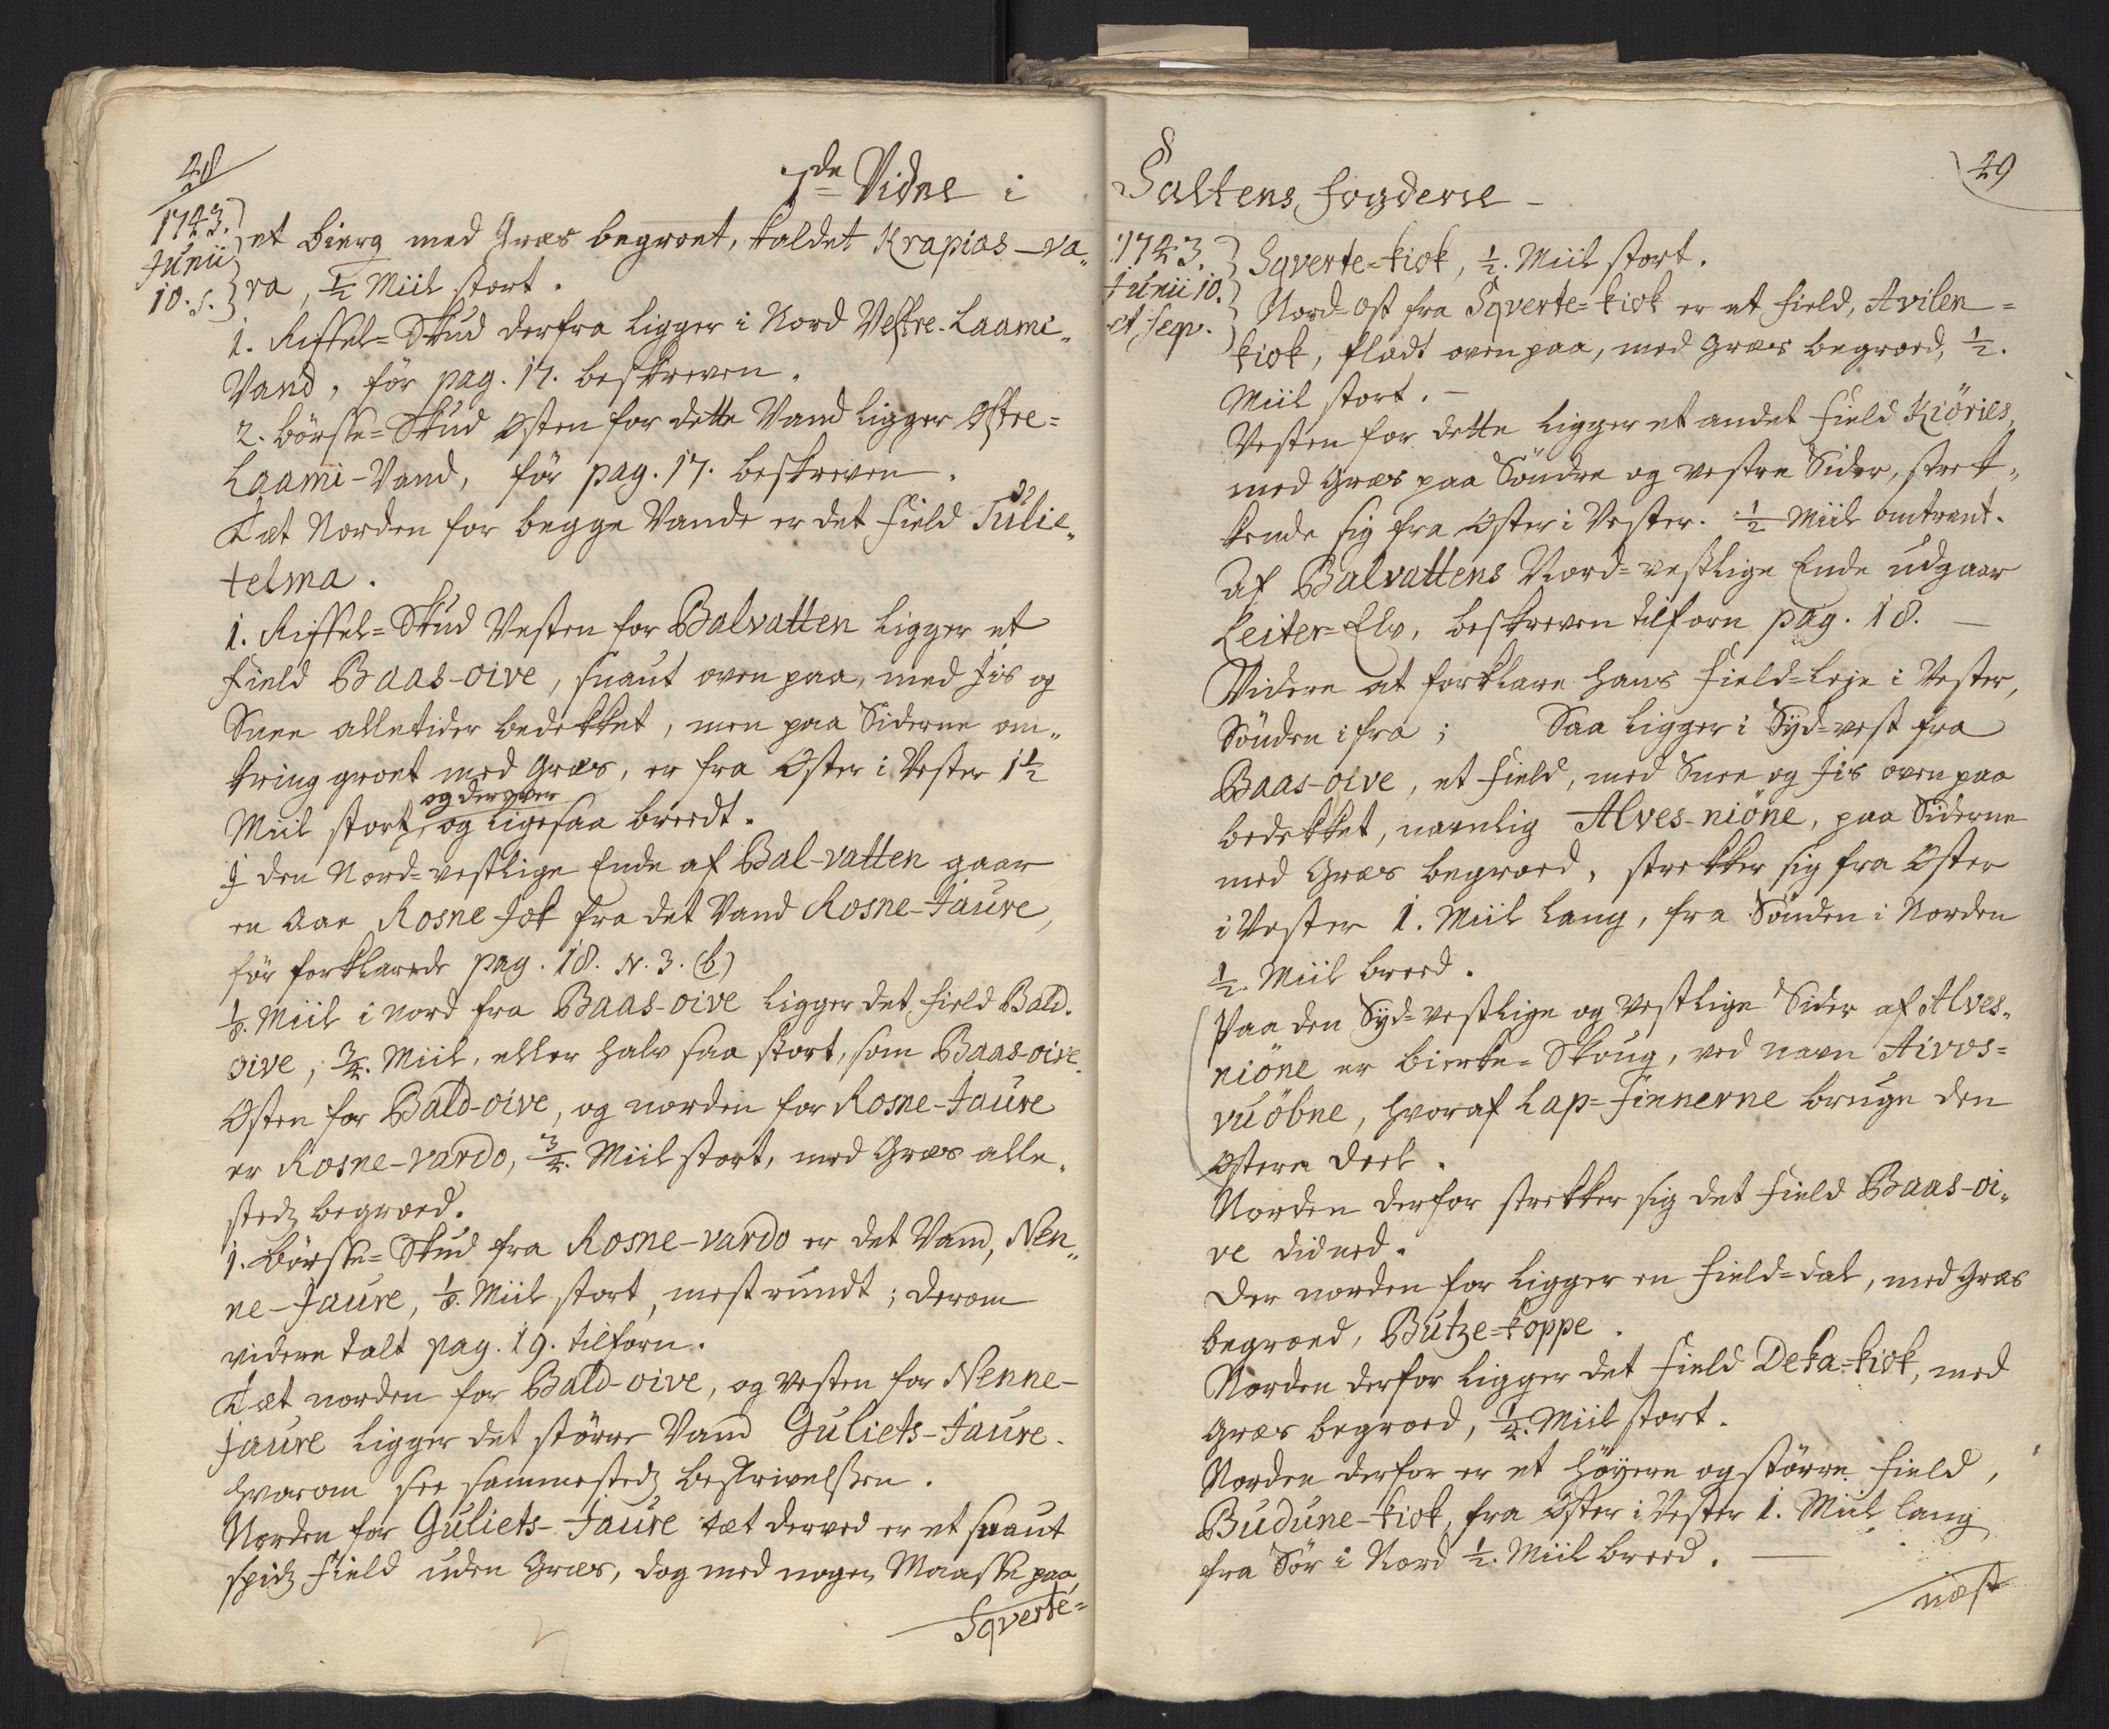 28
7de Vidne i
1743.
Junii
10. s.
et bierg med Græs begroet, kaldet Krapias-va„
ra, ½ Miil stort.
1. Riffel=Skud derfra ligger i Nord Vestre-Laami„
Vand, før pag. 17. beskreven.
2. börsse=Skud Osten for dette Vand ligger Ostre=
Laami-Vand, før pag. 17. beskreven.
Tæt Norden for begge Vande er det Field Sulie„
telma.
1. Riffel=Skud Vesten for Balvatten ligger et
Field Baas-oive, snaut oven paa, med Jis og
Snee alletider bedekket, men paa Siderne om„
kring groet med Græs, er fra Oster i Vester 1½
og derover
Miil stort, og ligesaa breedt.
I den Nord=vestlige Ende af Bal-vatten gaar
en Aae Rosne Jok fra det Vand Rosne-Jaure,
før forklarede pag. 18. N. 3. (b)
⅛. Miil i Nord fra Baas-oive ligger det Field Bald.
oive, ¾. Miil, eller halv saa stort, som Baas-oive.
Osten for Bald-oive, og norden for Rosne-Jaure
er Rosne-vardo, ¾. Miil stort, med Græs alle„
stedz begroed.
1. börsse=Skud fra Rosne-vardo er det Vand, Nen„
ne-Jaure, ⅛. Miil stort, mest rundt; derom
videre talt pag. 19. tilforn.
Tæt norden for Bald-oive, og vesten for Nenne-
jaure ligger det större Vand Guliets-Jaure.
hvorom see sammestedz beskrivelssen.
Norden for Guliets-Jaure tæt derved er et snaut
spidz Field uden Græs, dog med nogen Maasse paa,
Sqverte=
29
Saltens fogderie -
1743.
Junii 10.
et seqv.
Sqverte=kiok, ½. Miil stort.
Nord-Ost fra Sqverte=kiok er et Field, Avilen=
kiok, fladt oven paa, med Græs begroed, ½.
Miil stort. -
Vesten for dette ligger et andet Field Kiöries,
med Græs paa Söndre og vestre Sider, strek„
kende sig fra Oster i Vester. ½ Miil omtrent.
Af Balvattens Nord=vestlige Ende udgaar
Leiter=Elv, beskreven tilforn pag. 18. -
Videre at forklare hans Field=Leje i Vester,
Sönden ifra; Saa ligger i Syd=vest fra
Baas-oive, et Field, med Snee og Jis oven paa
bedekket, navnlig Alves-niöne, paa Siderne
med Græs begroed, strekker sig fra Oster
i Vester 1. Miil lang, fra Sönden i Norden
½. Miil breed.
Paa den Syd=vestlige og vestlige Sider af Alves„
niöne er bierke=Skoug, ved navn Aivos=
vuöbne, hvoraf Lap=Finnerne bruge den
Ostere Deel.
Norden derfor strekker sig det Field Baas-oi„
ve didned.
Der norden for ligger en Field=dal, med Græs
begroed, Butze=koppe.
Norden derfor ligger det Field Deka=kiok, med
Græs begroed, ¼. Miil stort.
Norden derfor er et höyere og större Field,
Budune-kiok, fra Oster i Vester 1. Miil lang
fra Sör i Nord ½. Miil breed. -
næst